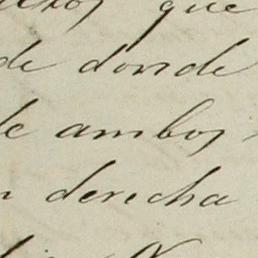 que
de donde
de ambos
derecha